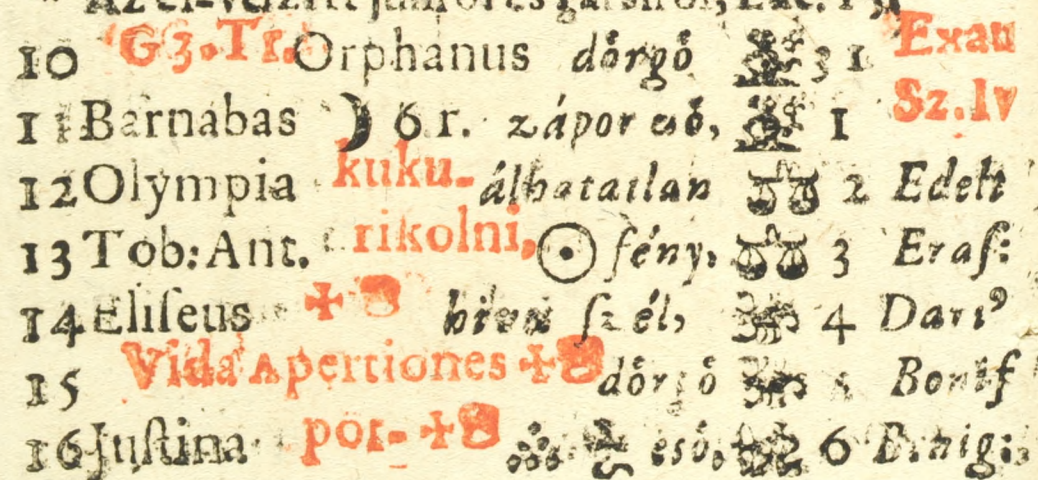 10 G 3. Tr. Orphanus dörgö 31 Exau
11 Barnabas ☽ 6 r. zápor esö, 1 Sz. Iv
12 Olympia kuku- álhatatlan ♎ 2
13 Tob: Ant. rikolni, ☉ fény, ♎ 3 Eraſ:
14 Eliſeus ✠ ſzél, 4
15 Vida Apertiones ✠ dörgö Bonif
16 Juſtina por- ✠ esö, 6